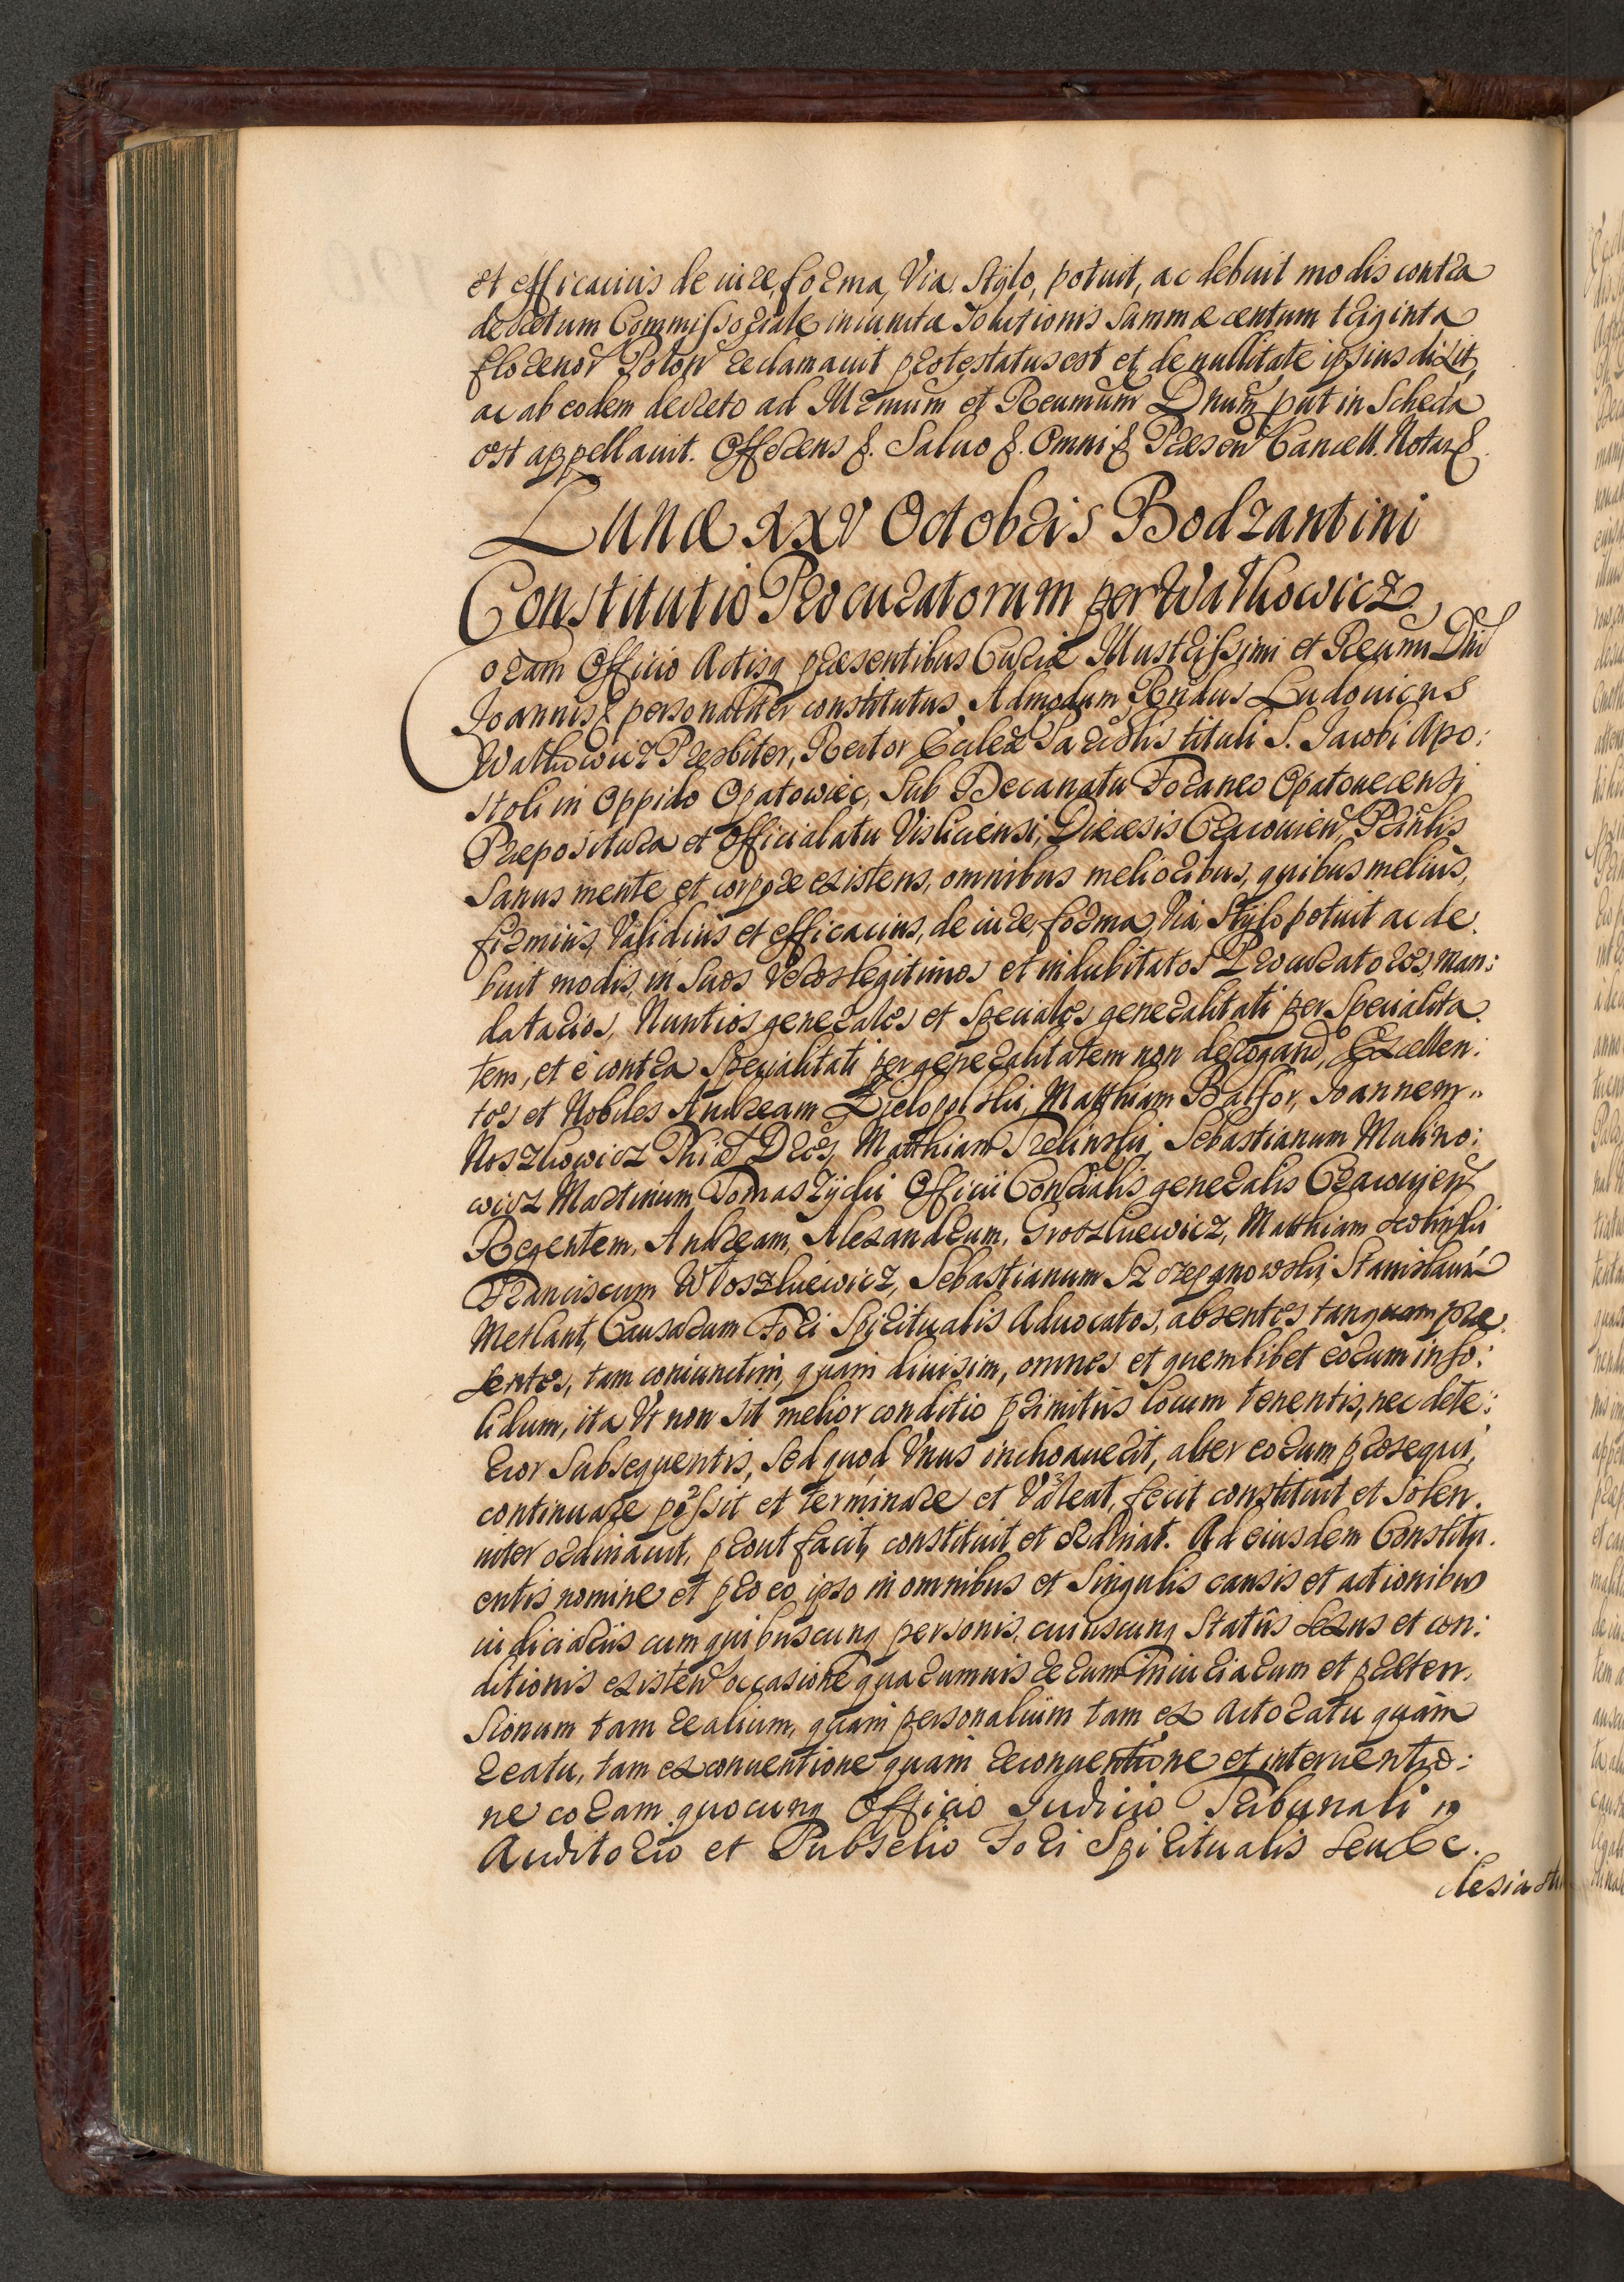 et efficaciùs de iure, forma, Via, Stylo, potuit, ac debuit modis contra
decretum Commissoriale iniunctæ solutionis summæ centum triginta
florenor Polon reclamauit protestatus est et de nullitate ipsius dixit,
ac ab eodem decreto ad Illrmum et Reumum Dnum put in Scheda
est appellauit. Offerens &. Saluo &. Omni & Præsen Cancell. Notar &.
Lunæ xxv Octobris Bodzantini
Constitutio Procuratorum per Wathowicz
Coram Officio Actisq præsentibus Curiæ Illustrissimi et Reumi Dni
Joannis & personaliter constitutus Admodum Rndus Ludouicus
Wathowicz Presbiter, Rector Eccleæ Parochlis tituli S. Jacobi Apo:
stoli in Oppido Opatowiec, Sub Decanatu Foraneo Opatouecensi
Præpositura et Officialatu Visliciensi, Diæcesis Cracouien, Prinlis
Sanus mente et corpore existens, omnibus melioribus, quibus meliùs,
firmiùs, Validiùs et efficacius, de iure, forma, Via, Stylo potuit ac de.
buit modis, in Suos Veros legitimos et indubitatos Procuratores, man:
datarios, Nuntios generales et Speciales generalitati per Specialita.
tem, et è contra Specialitati per generalitatem non derogand, Excellen:
tes et Nobiles Andream Zielopolski, Matthiam Balfor, Joannem
Noszkowicz Phiæ Dres, Matthiam Trelinski, Sebastianum Malino:
wicz Martinum Tomaszycki Officii Conrialis generalis Cracouien
Regentem, Andream, Alexandrum, Groszkiewicz, Matthiam
Franciscum Wloszkiewicz, Sebastianum Szczepanowski, Stanislaum
Metlant, Causarum Fori Spiritualis Aduocatos, absentes tanquam præ.
sentes, tam coniunctim, quam diuisim, omnes et quemlibet eorum inso:
lidum, ita Vt non sit melior conditio primitùs locum tenentis, nec dete:
rior Subsequentis, Sed quod Vnus inchoauerit, alter eorum prosequi,
continuare possit et terminare et Valeat, fecit constituit et Solen.
niter ordinauit, prout facit, constituit et ordinat. Ad eiusdem Constitu.
entis nomine et pro eo ipso in omnibus et Singulis causis et actionibus
iudiciariis cum quibuscunq personis, cuiuscunq Statûs sexus et con:
ditionis existen occasione quarumuis rerum iniuriarum et præten.
sionum tam realium, quam personalium tam ex actoratu quàm
reatu, tam ex conuentione quam reconuentione et interuentio:
ne coram quocunq Officio Iudicio Tribunali in
Auditorio et Subselio Fori Spiritualis seu Ec.
clesiasti